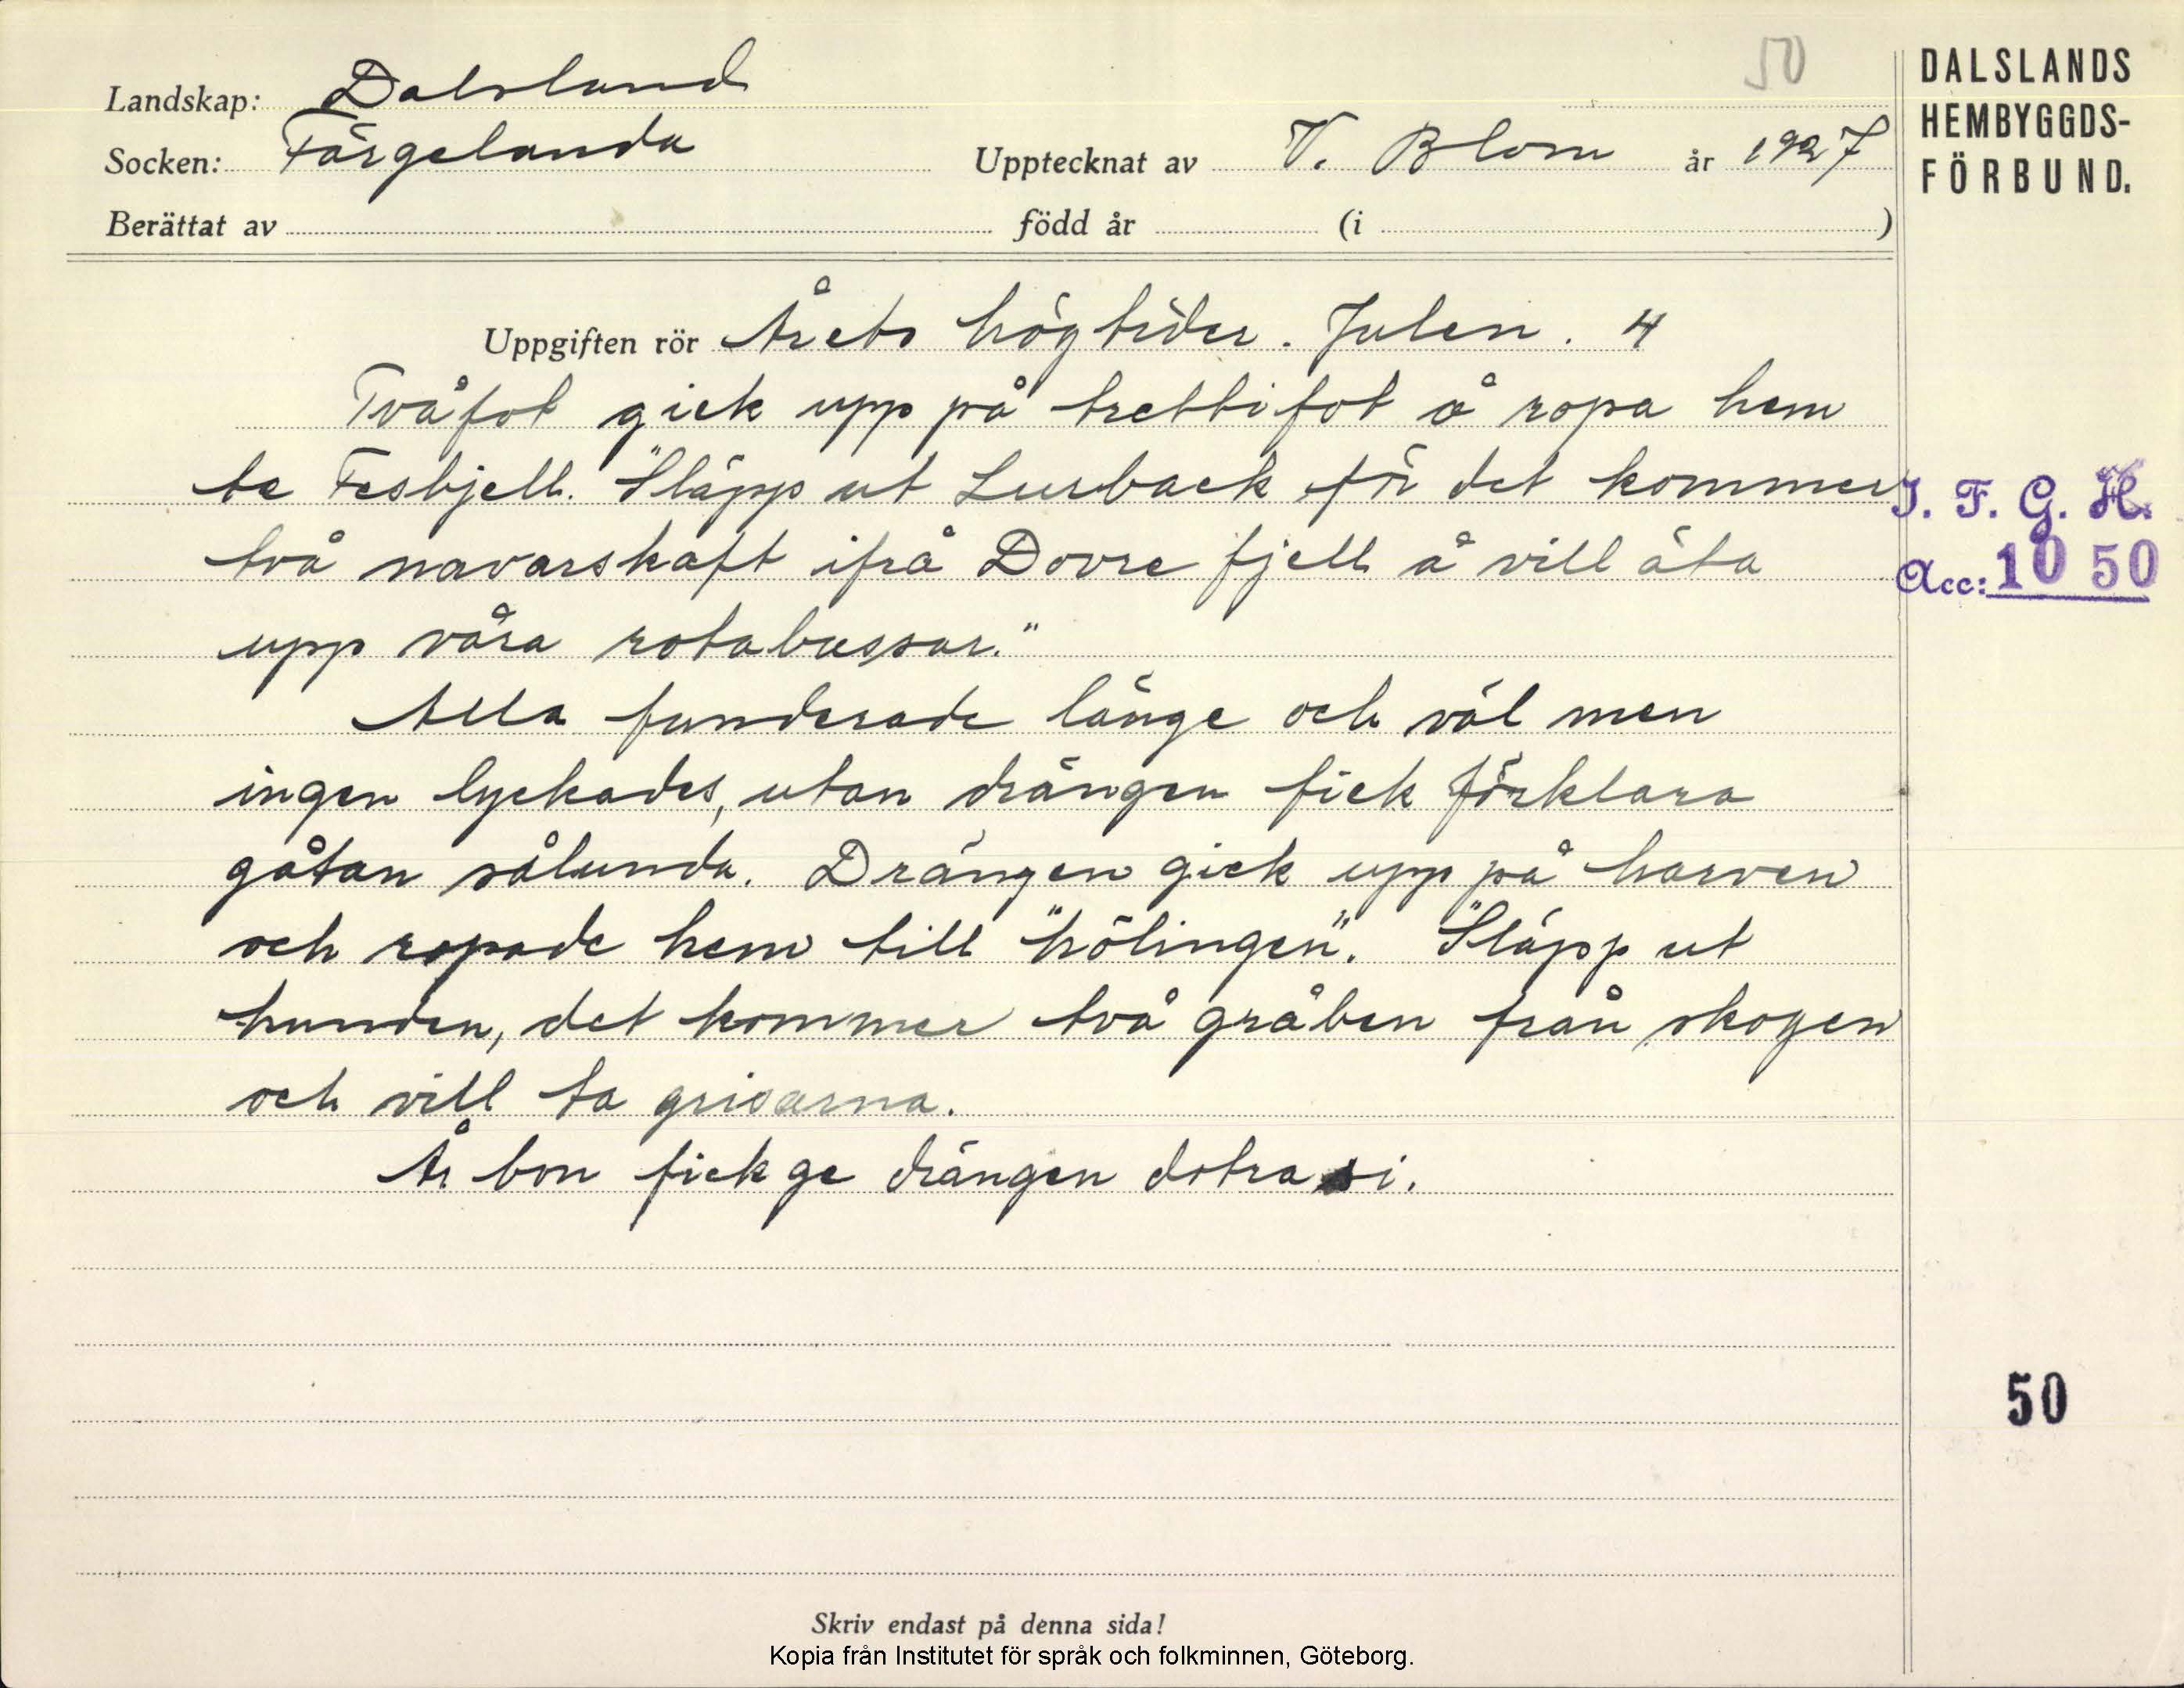 50
Landskap: Dalsland
Socken: Färgelanda Upptecknat av V. Blom år 1927
Berättat av född år (i )
DALSLANDS
HEMBYGGDS-
FÖRBUND.
Uppgiften rör Årets högtider. Julen. 4
Tvåfot gick upp på trettifot å ropa hem
te Fesbjell. "Släpp ut Lurback för det kommer
två navarskaft ifrå Dovre fjell å vill äta
upp våra rotabussar."
Alla funderade länge och väl men
ingen lyckades, utan drängen fick förklara
gåtan sålunda. Drängen gick upp på harven
och ropade hem till "hölingen". "Släpp ut
hunden, det kommer två gråben från skogen
och vill ta grisarna.
Å bon fick ge drängen dotra si.
I. F. G. H.
Acc: 10 50
50
Skriv endast på denna sida!
Kopia från Institutet för språk och folkminnen, Göteborg.